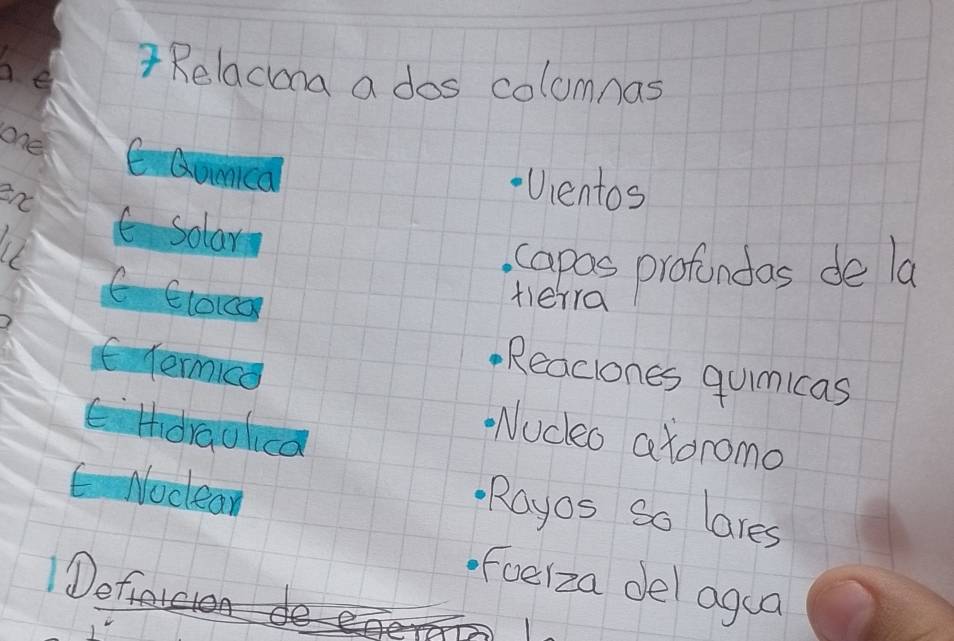 7 Relaciona a dos columnas
E Quimica
• Vientos
E Solar
• capas profundas de la
tierra
E Eloica
E Termica
• Reaciones quimicas
E Hidraulica
• Nucleo atoromo
E Nuclear
• Rayos so lares
• Fuerza del agua
1 Definicion de energia